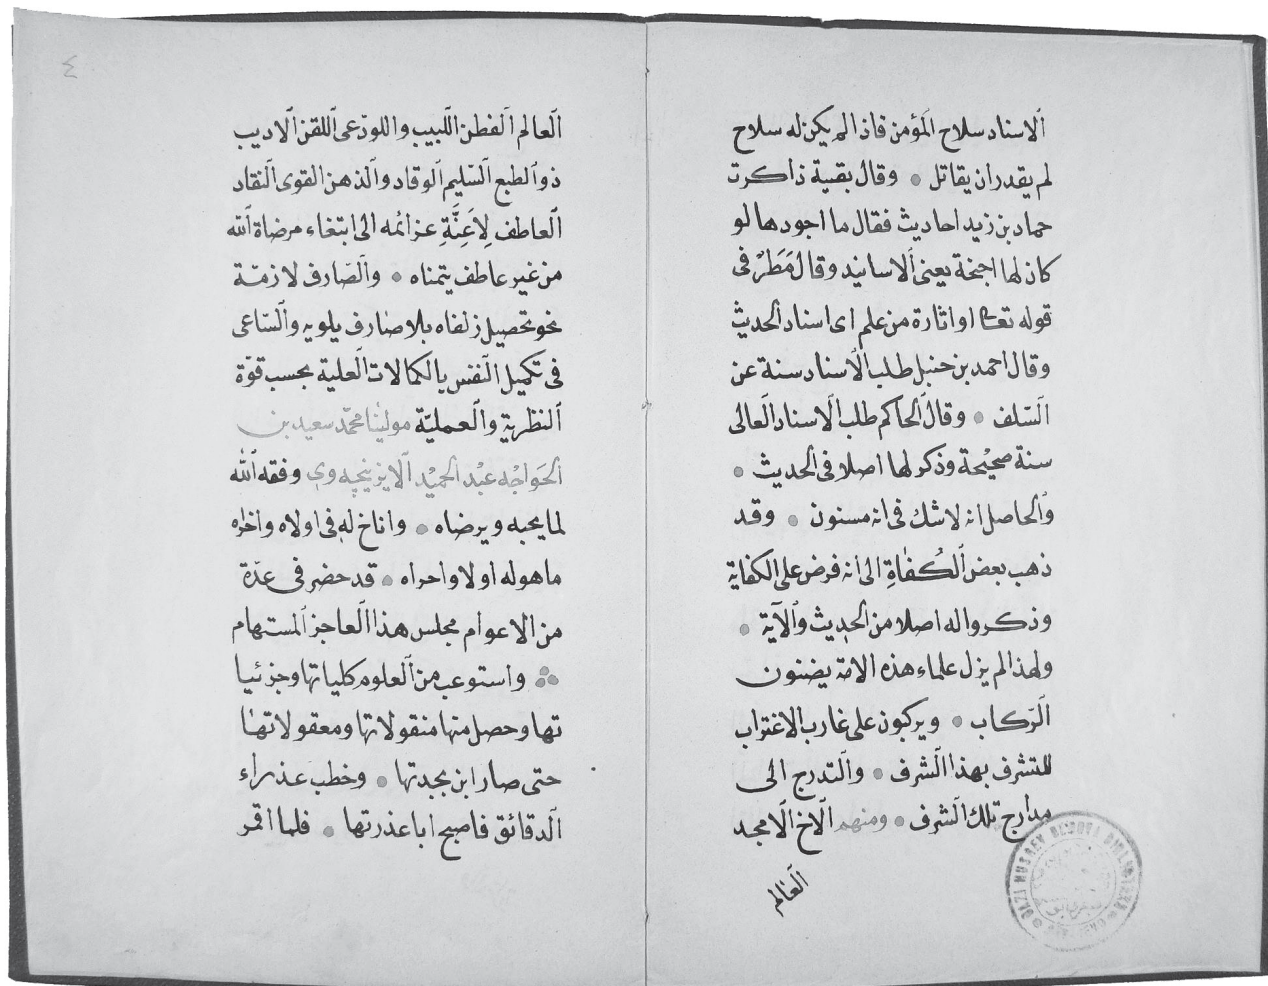 الاسناد سلاح المؤمن فاذا لم يكن له سلاح
لم يقدر ان يقاتل • وقال بقية ذاكرت
حماد بن زيد احاديث فقال ما اجودها لو
كان لها اجنحة يعنى الاسانيد وقال مَطَرْ فى
قوله تعا او اثارة من علم اى اسناد الحديث
وقال احمد بن حنبل طلب الاسناد سنة عن
السّلف • وقال الحاكم طلب الاسناد العالى
سنة صحيْحة وذكر لها اصلا فى الحديث •
والحاصل انه لا شك فى انه مسنون • وقد
ذهب بعض الكُفاةِ الى انه فرض على الكفاية
وذكروا له اصلا من الحديث والآية •
ولهذا لم يزل علماء هذه الامة يضنون
الرّكاب • ويركبون على غارب الاغتراب
للتشرف بهذا الشرف • والتدرج الى
مدارج تلك الشرف • ومنهم الاخ الامجد
العالم
٤
العالم الفطن اللبيب واللوذعى اللقن الاديب
ذو الطبع السّليم الوقاد والذهن القوى النقاد
العاطف لِاَعِنَّةِ عزائمه الى ابتغاء مرضاة الله
من غير عاطف يتمناه • والصّارف لازمّة
نحو تحصيل زلفاه بلا صارف يلويه والسّاعى
فى تكميل النفس بالكمالات العلية بحسب قوّة
النظرية والعمليّة مولينا محمّد سعيد بن
الحَواجْه عبْد الحميْد الايزينجه وي وفقه الله
لما يحبه ويرضاه • واناخ له فى اولاه واخراه
ما هو له اولا واحراه • قد حضر فى عدّة
من الاعوام مجلس هذا العاجز المستهام
واستوعب من العلوم كلياتها وجزئيا
تها وحصل منها منقولاتها ومعقولاتها
حتى صار ابن بجدتها • وخطب عذراء
الدقائق فاصبح ابا عذرتها • فلما اقمر